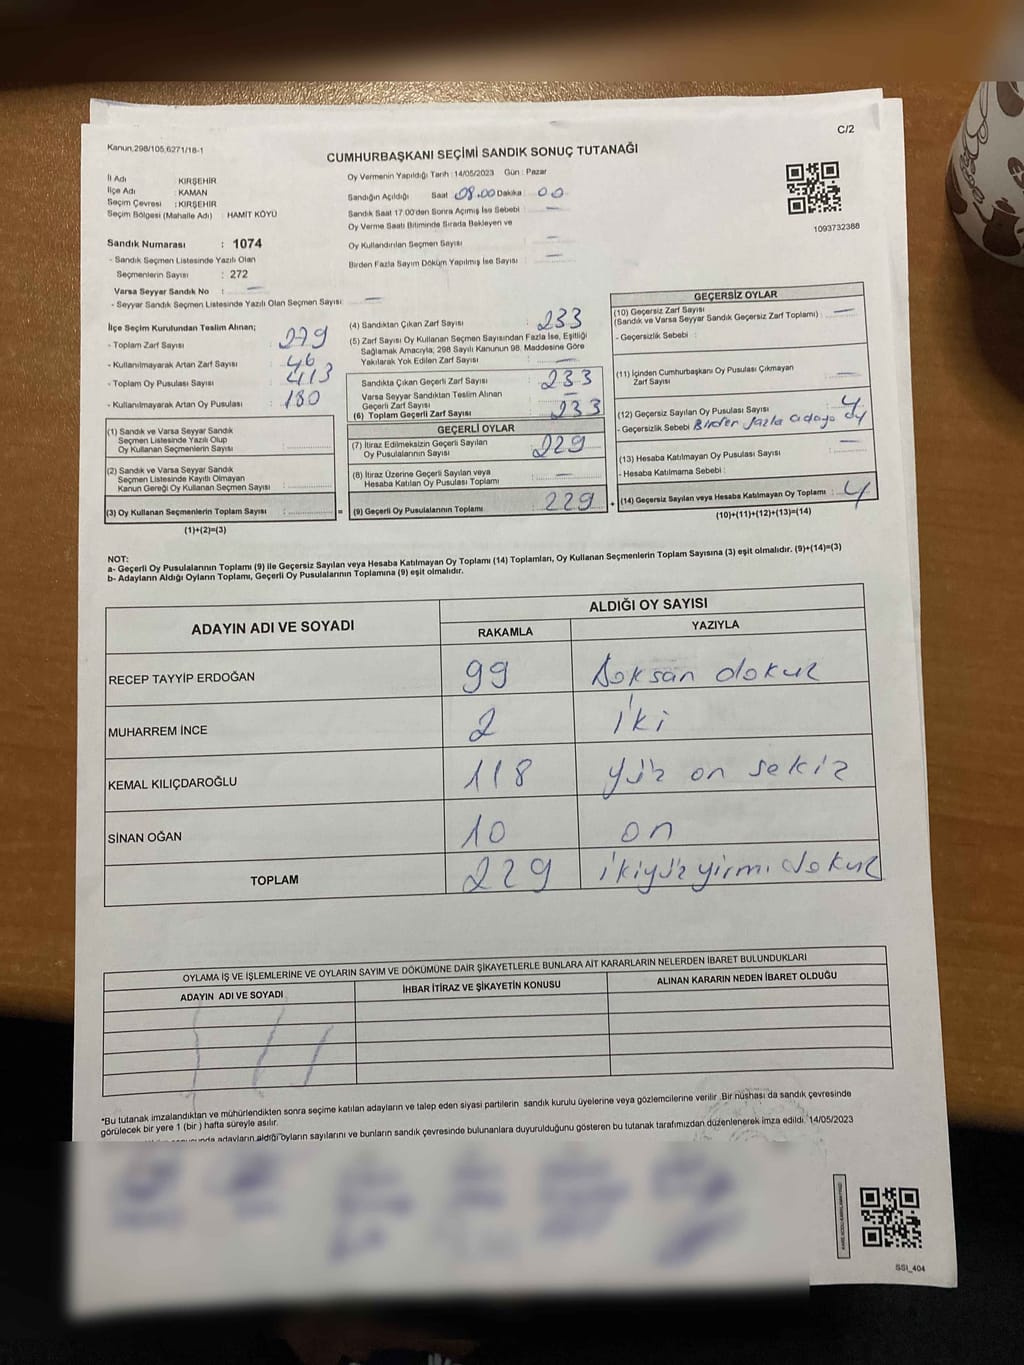 C/2
Kanun.298/105,6271/18-1
CUMHURBAŞKANI SEÇİMİ SANDIK SONUÇ TUTANAĞI
İl Adı : KIRŞEHİR
İlçe Adı : KAMAN
Seçim Çevresi : KIRŞEHİR
Seçim Bölgesi (Mahalle Adı) : HAMİT KÖYÜ
Sandık Numarası : 1074
- Sandık Seçmen Listesinde Yazılı Olan
Seçmenlerin Sayısı : 272
Varsa Seyyar Sandık No : —
- Seyyar Sandık Seçmen Listesinde Yazılı Olan Seçmen Sayısı : —
Oy Vermenin Yapıldığı Tarih : 14/05/2023 Gün : Pazar
Sandığın Açıldığı Saat 08.00 Dakika : 00
Sandık Saat 17:00'den Sonra Açımış İse Sebebi : —
Oy Verme Saati Bitiminde Sırada Bekleyen ve
Oy Kullandırılan Seçmen Sayısı : —
Birden Fazla Sayım Döküm Yapılmış İse Sayısı : —
1093732388
İlçe Seçim Kurulundan Teslim Alınan;
- Toplam Zarf Sayısı : 279
- Kullanılmayarak Artan Zarf Sayısı : 46
- Toplam Oy Pusulası Sayısı : 413
- Kullanılmayarak Artan Oy Pusulası : 180
(1) Sandık ve Varsa Seyyar Sandık
Seçmen Listesinde Yazılı Olup
Oy Kullanan Seçmenlerin Sayısı :
(2) Sandık ve Varsa Seyyar Sandık
Seçmen Listesinde Kayıtlı Olmayan
Kanun Gereği Oy Kullanan Seçmen Sayısı :
(3) Oy Kullanan Seçmenlerin Toplam Sayısı : =
(1)+(2)=(3)
(4) Sandıktan Çıkan Zarf Sayısı : 233
(5) Zarf Sayısı Oy Kullanan Seçmen Sayısından Fazla İse, Eşitliği
Sağlamak Amacıyla; 298 Sayılı Kanunun 98. Maddesine Göre
Yakılarak Yok Edilen Zarf Sayısı : —
Sandıkta Çıkan Geçerli Zarf Sayısı : 233
Varsa Seyyar Sandıktan Teslim Alınan
Geçerli Zarf Sayısı : —
(6) Toplam Geçerli Zarf Sayısı : 233
GEÇERLİ OYLAR
(7) İtiraz Edilmeksizin Geçerli Sayılan
Oy Pusulasının Sayısı : 229
(8) İtiraz Üzerine Geçerli Sayılan veya
Hesaba Katılan Oy Pusulası Toplamı : —
(9) Geçerli Oy Pusulalarının Toplamı : 229 +
GEÇERSİZ OYLAR
(10) Geçersiz Zarf Sayısı
(Sandık ve Varsa Seyyar Sandık Geçersiz Zarf Toplamı) : —
- Geçersizlik Sebebi :
(11) İçinden Cumhurbaşkanı Oy Pusulası Çıkmayan
Zarf Sayısı : —
(12) Geçersiz Sayılan Oy Pusulası Sayısı : 4
- Geçersizlik Sebebi Birden fazla adaya oy
(13) Hesaba Katılmayan Oy Pusulası Sayısı : —
- Hesaba Katılmama Sebebi :
(14) Geçersiz Sayılan veya Hesaba Katılmayan Oy Toplamı : 4
(10)+(11)+(12)+(13)=(14)
NOT:
a- Geçerli Oy Pusulalarının Toplamı (9) ile Geçersiz Sayılan veya Hesaba Katılmayan Oy Toplamı (14) Toplamları, Oy Kullanan Seçmenlerin Toplam Sayısına (3) eşit olmalıdır. (9)+(14)=(3)
b- Adayların Aldığı Oyların Toplamı, Geçerli Oy Pusulalarının Toplamına (9) eşit olmalıdır.
ADAYIN ADI VE SOYADI ALDIĞI OY SAYISI
RAKAMLA YAZIYLA
RECEP TAYYİP ERDOĞAN 99 Doksan dokuz
MUHARREM İNCE 2 iki
KEMAL KILIÇDAROĞLU 118 yüz on sekiz
SİNAN OĞAN 10 on
TOPLAM 229 ikiyüz yirmi dokuz
OYLAMA İŞ VE İŞLEMLERİNE VE OYLARIN SAYIM VE DÖKÜMÜNE DAİR ŞİKAYETLERLE BUNLARA AİT KARARLARIN NELERDEN İBARET BULUNDUKLARI
ADAYIN ADI VE SOYADI İHBAR İTİRAZ VE ŞİKAYETİN KONUSU ALINAN KARARIN NEDEN İBARET OLDUĞU
*Bu tutanak imzalandıktan ve mühürlendikten sonra seçime katılan adayların ve talep eden siyasi partilerin sandık kurulu üyelerine veya gözlemcilerine verilir .Bir nüshası da sandık çevresinde
görülecek bir yere 1 (bir ) hafta süreyle asılır.
adayların aldığı oyların sayılarını ve bunların sandık çevresinde bulunanlara duyurulduğunu gösteren bu tutanak tarafımızdan düzenlenerek imza edildi. 14/05/2023
SSI_404